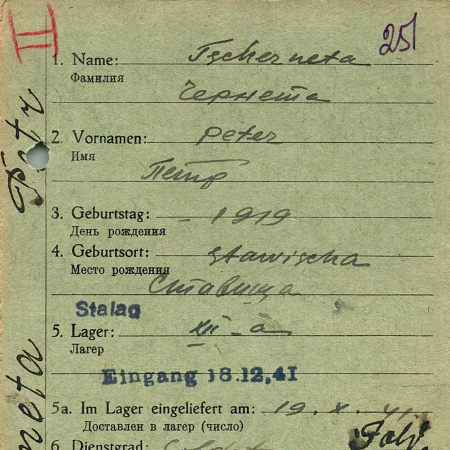 II
251
1. Name: Tscherneta
Фамилия
Чернета
2. Vornamen: Peter
Имя
Петр
3. Geburtstag: – 1919
День рождения
4. Geburtsort: Stawischa
Место рождения
Ставища
Stalag
5. Lager: XII–a
Лагерь
Eingang 18.12.41
5a. Im Lager eingeliefert am: 19. X. 41
Доставлен в лагерь (число)
6. Dienstgrad: Soldat
Petr